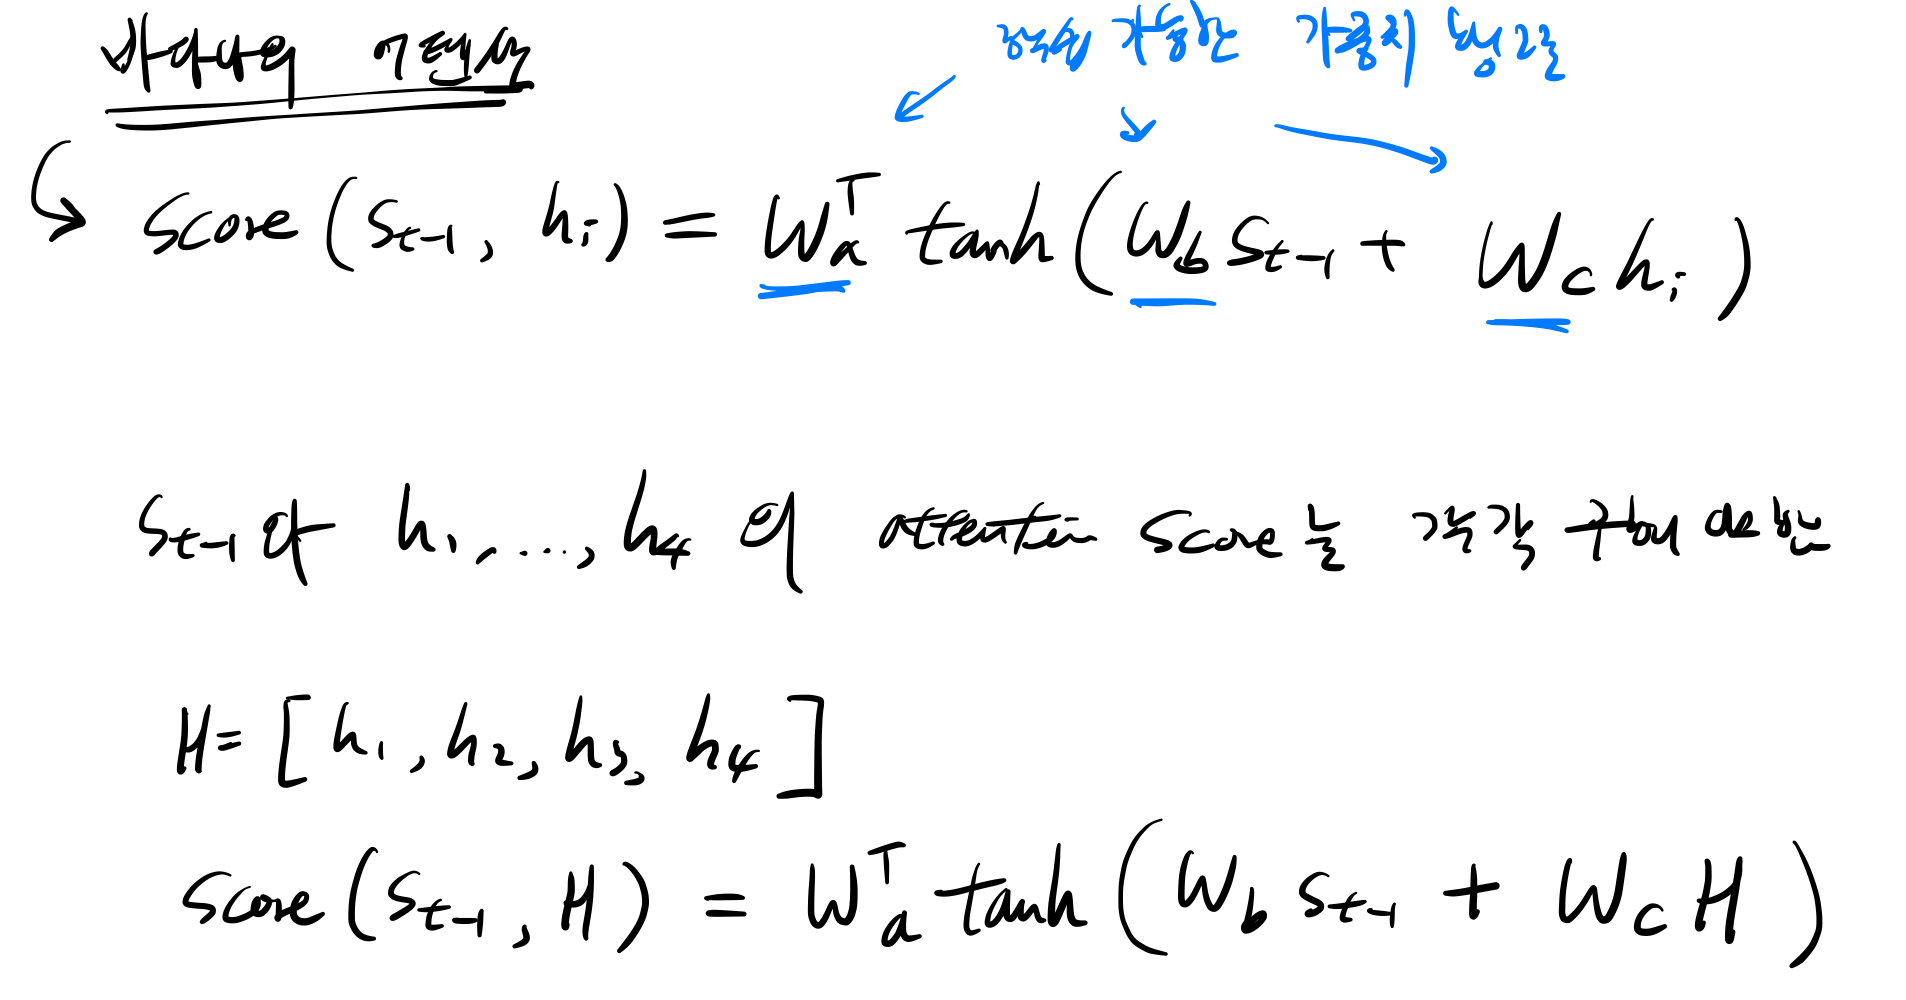 바다나우 어텐션
학습 가능한 가중치 행렬
score(s_{t-1}, h_i) = W_a^T tanh(W_b s_{t-1} + W_c h_i)
s_{t-1} 와 h_1, ..., h_4 의 attention score를 각각 구해야 하는
H = [h_1, h_2, h_3, h_4]
score(s_{t-1}, H) = W_a^T tanh(W_b s_{t-1} + W_c H)